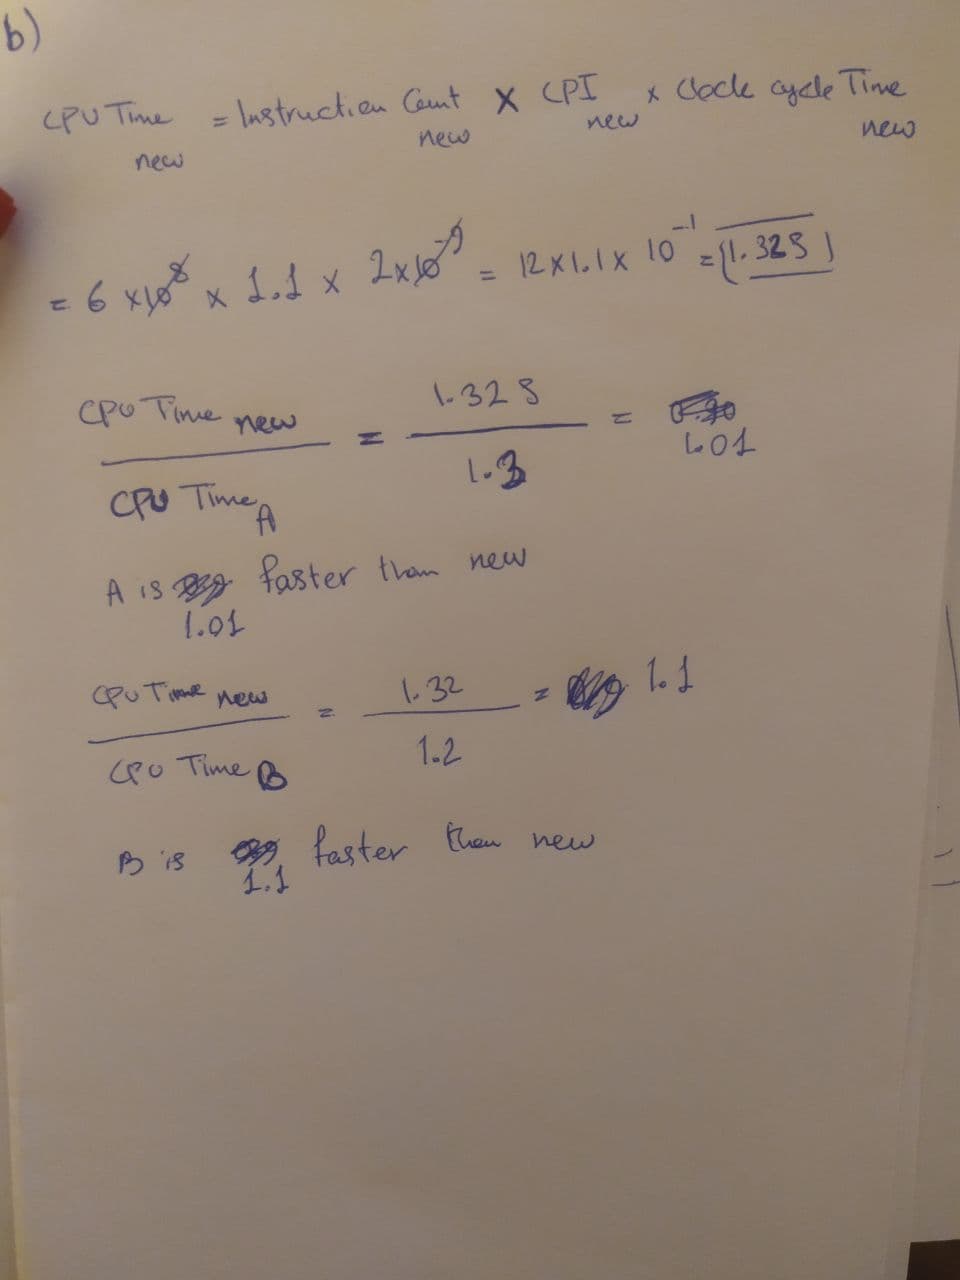 b)
CPU Time new = Instruction Count new X CPI new x Clock cycle Time new
= 6 x10^8 x 1.1 x 2x10^-9 = 12x1.1x 10^-1 = 1.32 s
CPU Time new / CPU Time A = 1.32 s / 1.3 = 1.01
A is 1.01 faster than new
CPU Time new / CPU Time B = 1.32 / 1.2 = 1.1
B is 1.1 faster than new